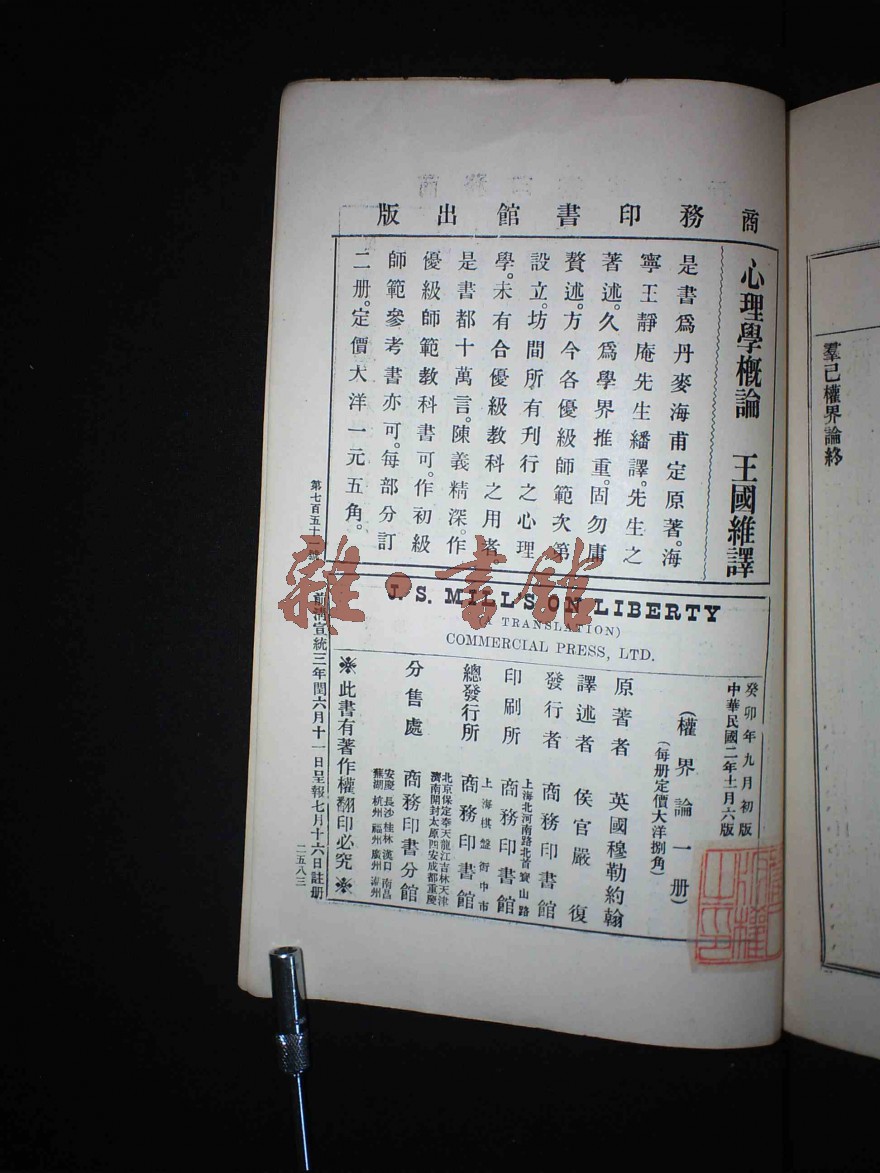 羣己權界論終
商務印書館出版
心理學概論　王國維譯
是書爲丹麥海甫定原著。海
寧王靜庵先生繙譯。先生之
著述。久爲學界推重。固勿庸
贅述。方今各優級師範次第
設立。坊間所有刊行之心理
學。未有合優級教科之用者
是書都十萬言。陳義精深。作
優級師範教科書可。作初級
師範參考書亦可。每部分訂
二册。定價大洋一元五角。
第七百五十一號
雜·書館
J. S. MILL'S ON LIBERTY
(A TRANSLATION)
COMMERCIAL PRESS, LTD.
癸卯年九月初版
中華民國二年十二月六版
(權界論一册)
(每册定價大洋捌角)
原著者　英國穆勒約翰
譯述者　侯官嚴復
發行者　商務印書館
上海北河南路北首寶山路
印刷所　商務印書館
上海棋盤街中市
總發行所　商務印書館
北京保定奉天龍江吉林天津
濟南開封太原西安成都重慶
分售處　商務印書分館
安慶長沙桂林漢口南昌
蕪湖杭州福州廣州潮州
※此書有著作權翻印必究※
前清宣統三年閏六月十一日呈報七月十六日註册
二五八三